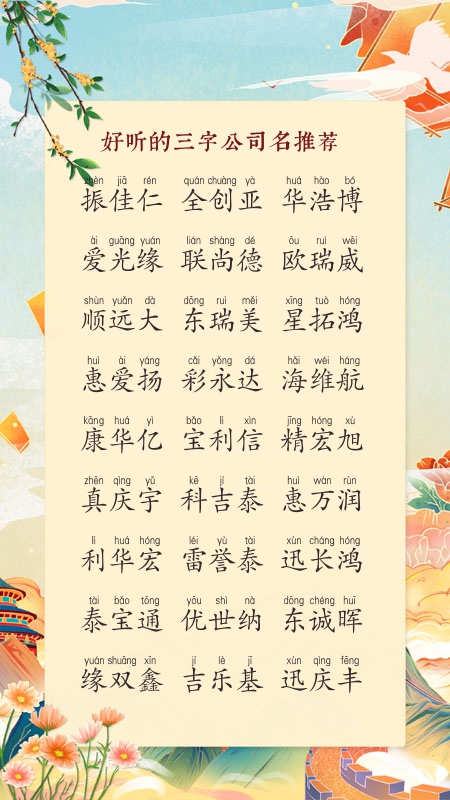 好听的三字公司名推荐
zhèn jiā rén quán chuàng yà huá hào bó
振佳仁 全创亚 华浩博
ài guāng yuán lián shàng dé ōu ruì wēi
爱光缘 联尚德 欧瑞威
shùn yuǎn dà dōng ruì měi xīng tuò hóng
顺远大 东瑞美 星拓鸿
huì ài yáng cǎi yǒng dá hǎi wéi háng
惠爱扬 彩永达 海维航
kāng huá yì bǎo lì xìn jīng hóng xù
康华亿 宝利信 精宏旭
zhēn qìng yǔ kē jí tài huì wàn rùn
真庆宇 科吉泰 惠万润
lì huá hóng léi yù tài xùn cháng hóng
利华宏 雷誉泰 迅长鸿
tài bǎo tōng yōu shì nà dōng chéng huī
泰宝通 优世纳 东诚晖
yuán shuāng xīn jí lè jī xùn qìng fēng
缘双鑫 吉乐基 迅庆丰